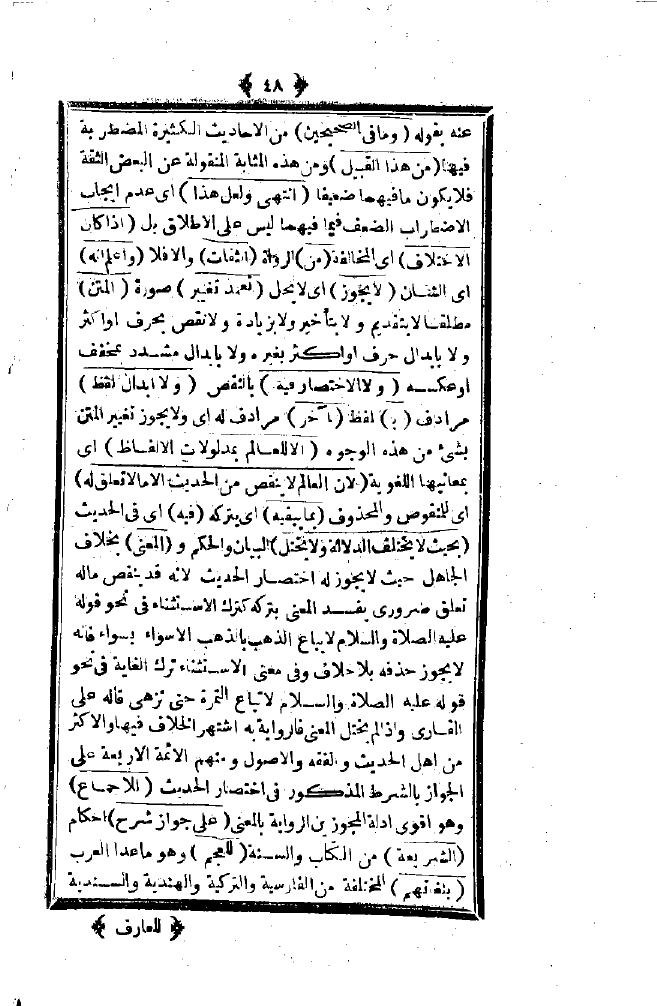 ﴿ ٤٨ ﴾
عنه بقوله ( وما فى الصحيحين ) من الاحاديث الكثيرة المضطربة
فيها ( من هذا القبيل ) ومن هذه المثابة المنقولة عن البعض الثقة
فلا يكون ما فيهما ضعيفا ( انتهى ولعل هذا ) اى عدم ايجاب
الاضطراب الضعف فيما فيهما ليس على الاطلاق بل ( اذا كان
الاختلاف ) اى المخالفة ( من ) الرواة ( الثقات ) والا فلا ( واعلم انه )
اى الشان ( لا يجوز ) اى لا يحل ( تعمد تغيير ) صورة ( المتن )
مطلقا لا بتقديم و لا بتأخير ولا بزيادة و لا نقص بحرف او اكثر
و لا بابدال حرف او اكثر بغيره ولا بابدال مشدد بمخفف
او عكسه ( ولا الاختصار فيه ) بالنقص ( ولا ابدال لفظ )
مرادف ( ب ) لفظ ( آخر ) مرادف له اى ولا يجوز تغيير المتن
بشئ من هذه الوجوه ( الا للعالم بمدلولات الالفاظ ) اى
بمعانيها اللغوية ( لان العالم لا ينقص من الحديث الا ما لا تعلق له )
اى للمنقوص والمحذوف ( بما يبقيه ) اى يتركه ( فيه ) اى فى الحديث
( بحيث لا يختلف الدلالة ولا يختل ) البيان والحكم و ( المعنى ) بخلاف
الجاهل حيث لا يجوز له اختصار الحديث لانه قد ينقص ماله
تعلق ضرورى يفسد المعنى بتركه كترك الاستثناء فى نحو قوله
عليه الصلاة والسلام لا يباع الذهب بالذهب الا سواء بسواء فانه
لا يجوز حذفه بلا خلاف وفى معنى الاستثناء ترك الغاية فى نحو
قوله عليه الصلاة والسلام لا تباع الثمرة حتى تزهى قاله على
القارى واذا لم يختل المعنى فالرواية به اشتهر الخلاف فيها والاكثر
من اهل الحديث والفقه والاصول ومنهم الائمة الاربعة على
الجواز بالشرط المذكور فى اختصار الحديث ( للاجماع )
وهو اقوى ادلة المجوزين الرواية بالمعنى ( على جواز شرح ) احكام
( الشريعة ) من الكتاب والسنة ( للعجم ) وهو ماعدا العرب
( بلغاتهم ) المختلفة من الفارسية والتركية والهندية والسندية
﴿ للعارف ﴾